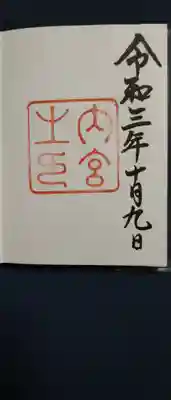 令和三年十月九日
内宮
之印